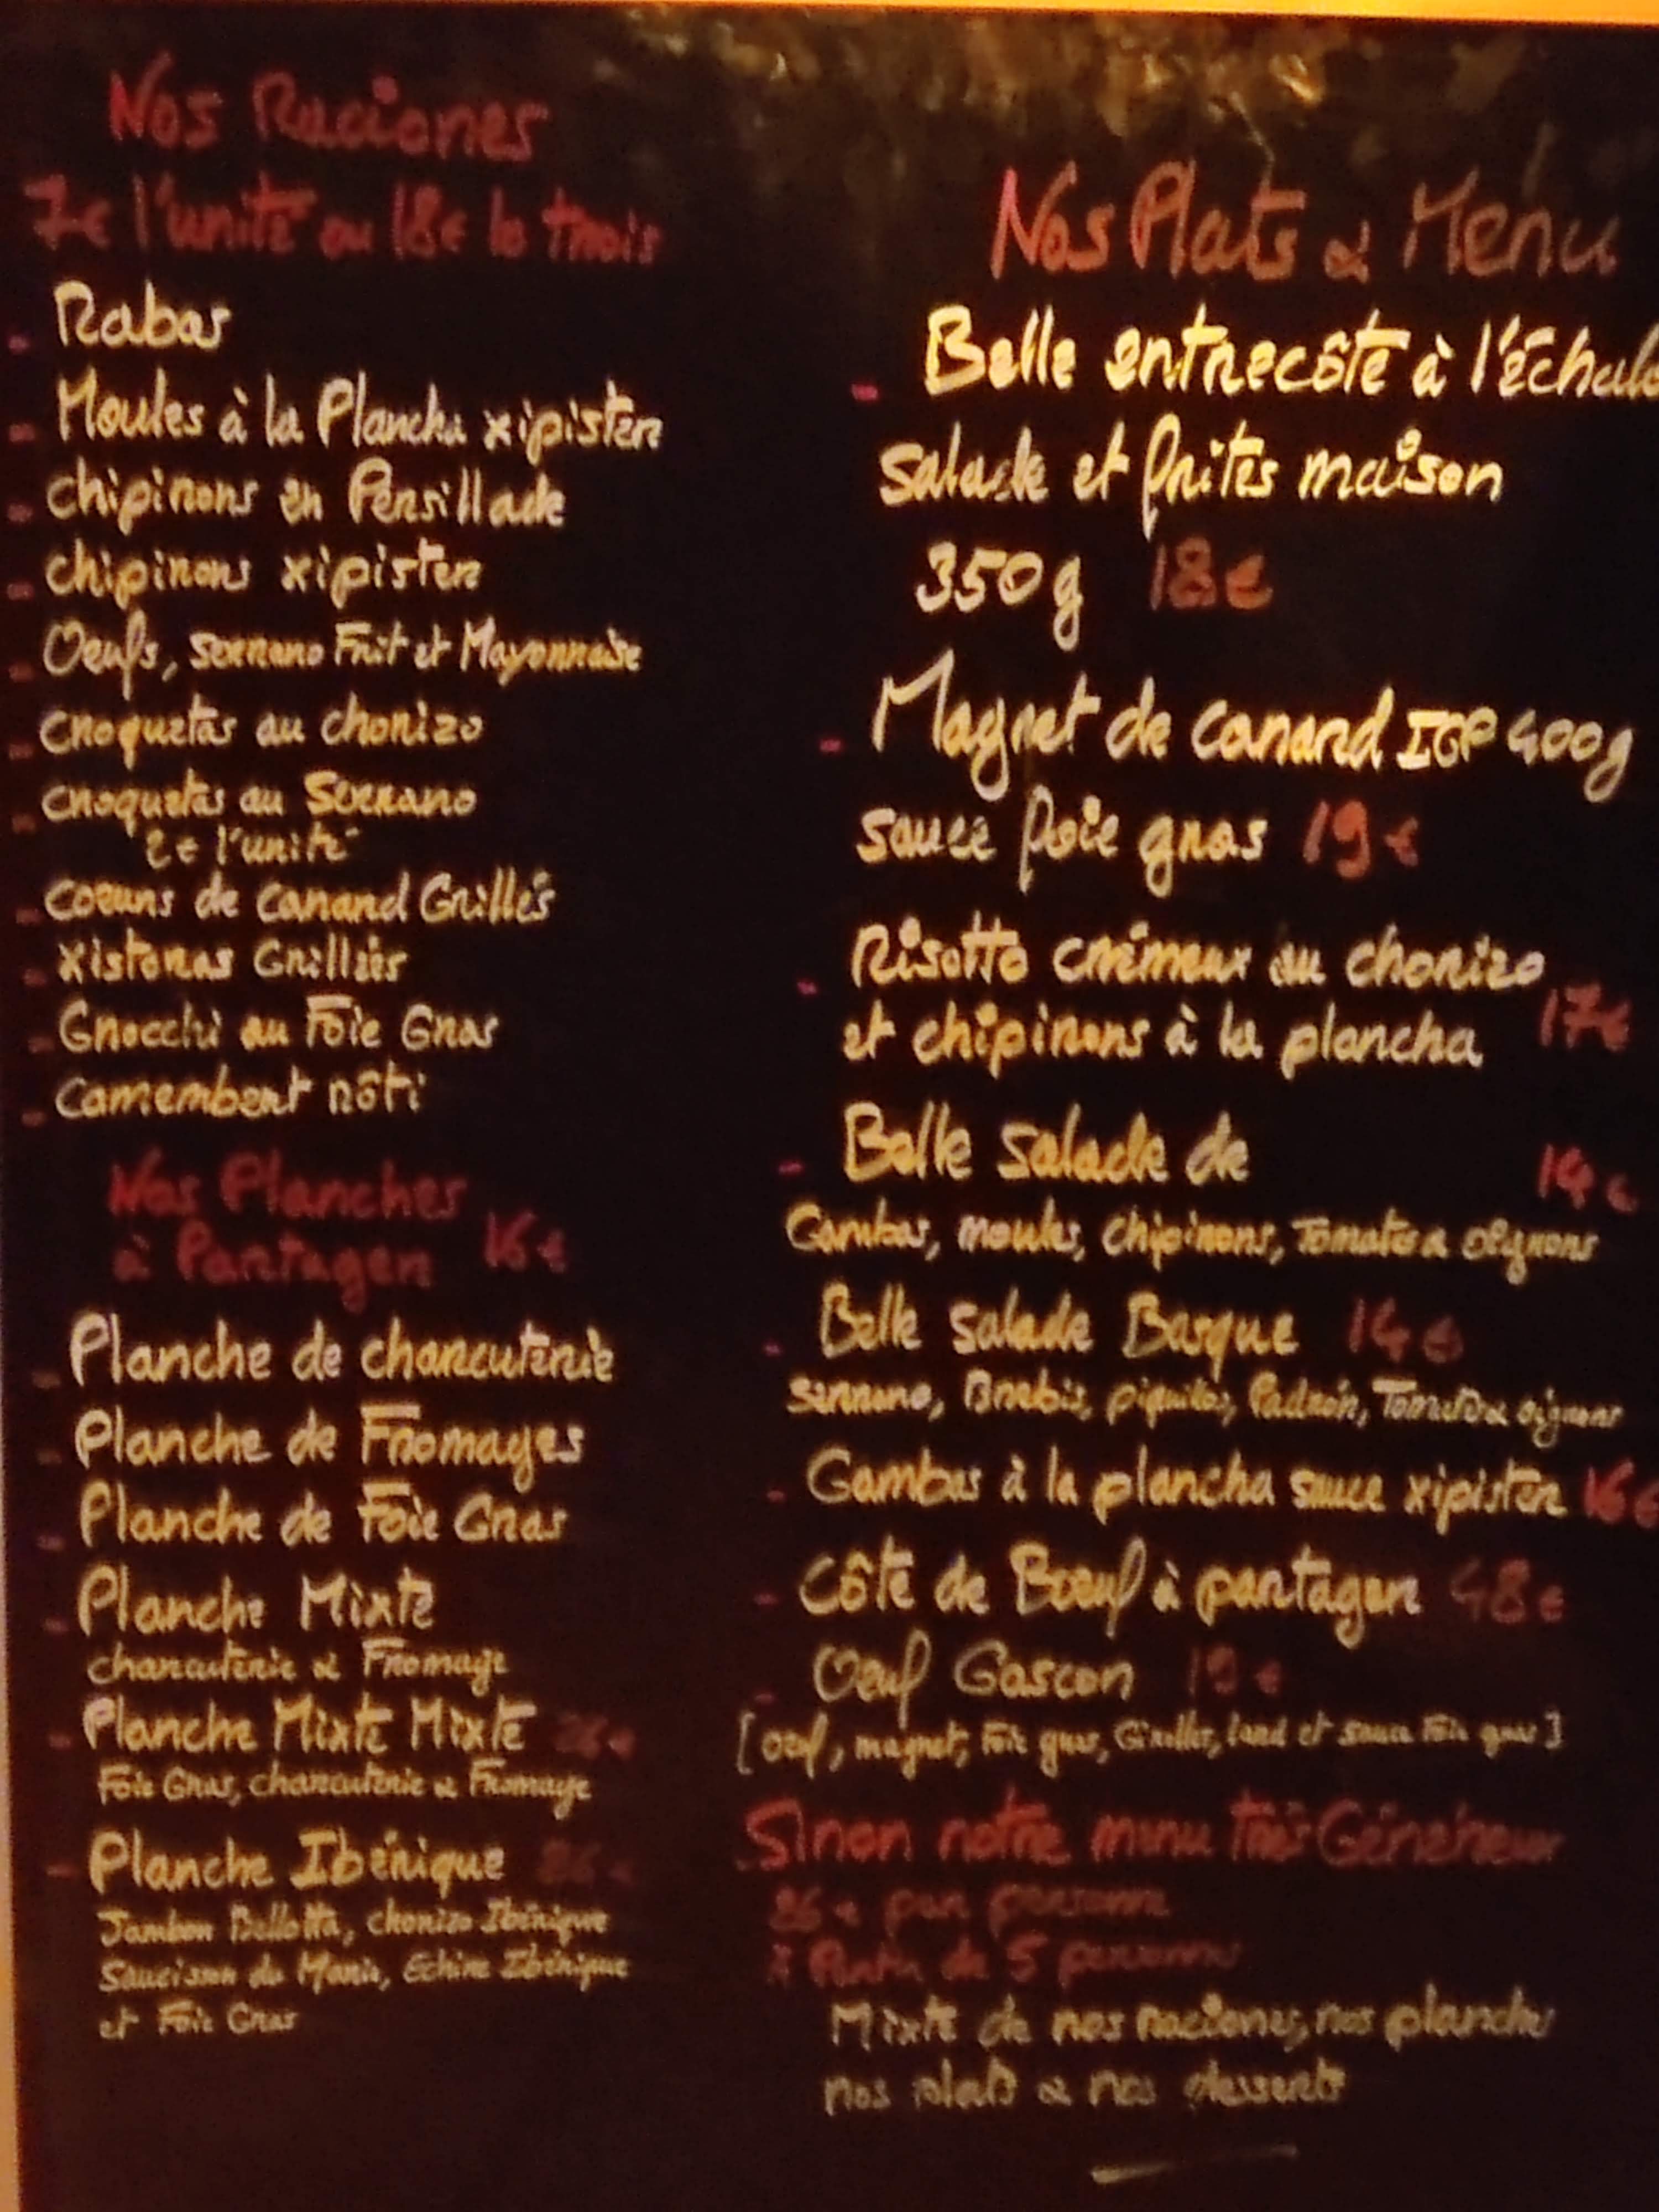 Nos Raciones
7€ l'unité ou 18€ le trois
- Rabas
- Moules à la Plancha xipister
- chipirons en Persillade
- chipirons xipister
- Oeufs, serrano Frit et Mayonnaise
- croquetas au chorizo
- croquetas au Serrano
"2€ l'unité"
- coeurs de canard Grillés
- xistoras Grillées
- Gnocchi au Foie Gras
- camembert rôti
Nos Planches
à Partager 16€
- Planche de charcuterie
- Planche de Fromages
- Planche de Foie Gras
- Planche Mixte
charcuterie & Fromage
- Planche Mixte Mixte
Foie Gras, charcuterie & Fromage
- Planche Ibérique
Jambon Bellotta, chorizo Ibérique
Saucisson du Manix, Echine Ibérique
et Foie Gras
Nos Plats & Menu
- Belle entrecôte à l'échalo
salade et frites maison
350g 18€
- Magret de canard IGP 400g
sauce foie gras 19€
- Risotto crémeux au chorizo
et chipirons à la plancha 17€
- Belle salade de 14€
Gambas, moules, chipirons, Tomates & oignons
- Belle salade Basque 14€
serrano, Brebis, piquillos, Padrón, Tomates & oignons
- Gambas à la plancha sauce xipister 16€
- Côte de Boeuf à partager 48€
- Oeuf Gascon 19€
[oeuf, magret, Foie gras, Girolles, lard et sauce Foie gras]
Sinon notre menu très Généreux
26€ par personne
à Partir de 5 personnes
Mixte de nos raciones, nos planches
nos plats & nos desserts